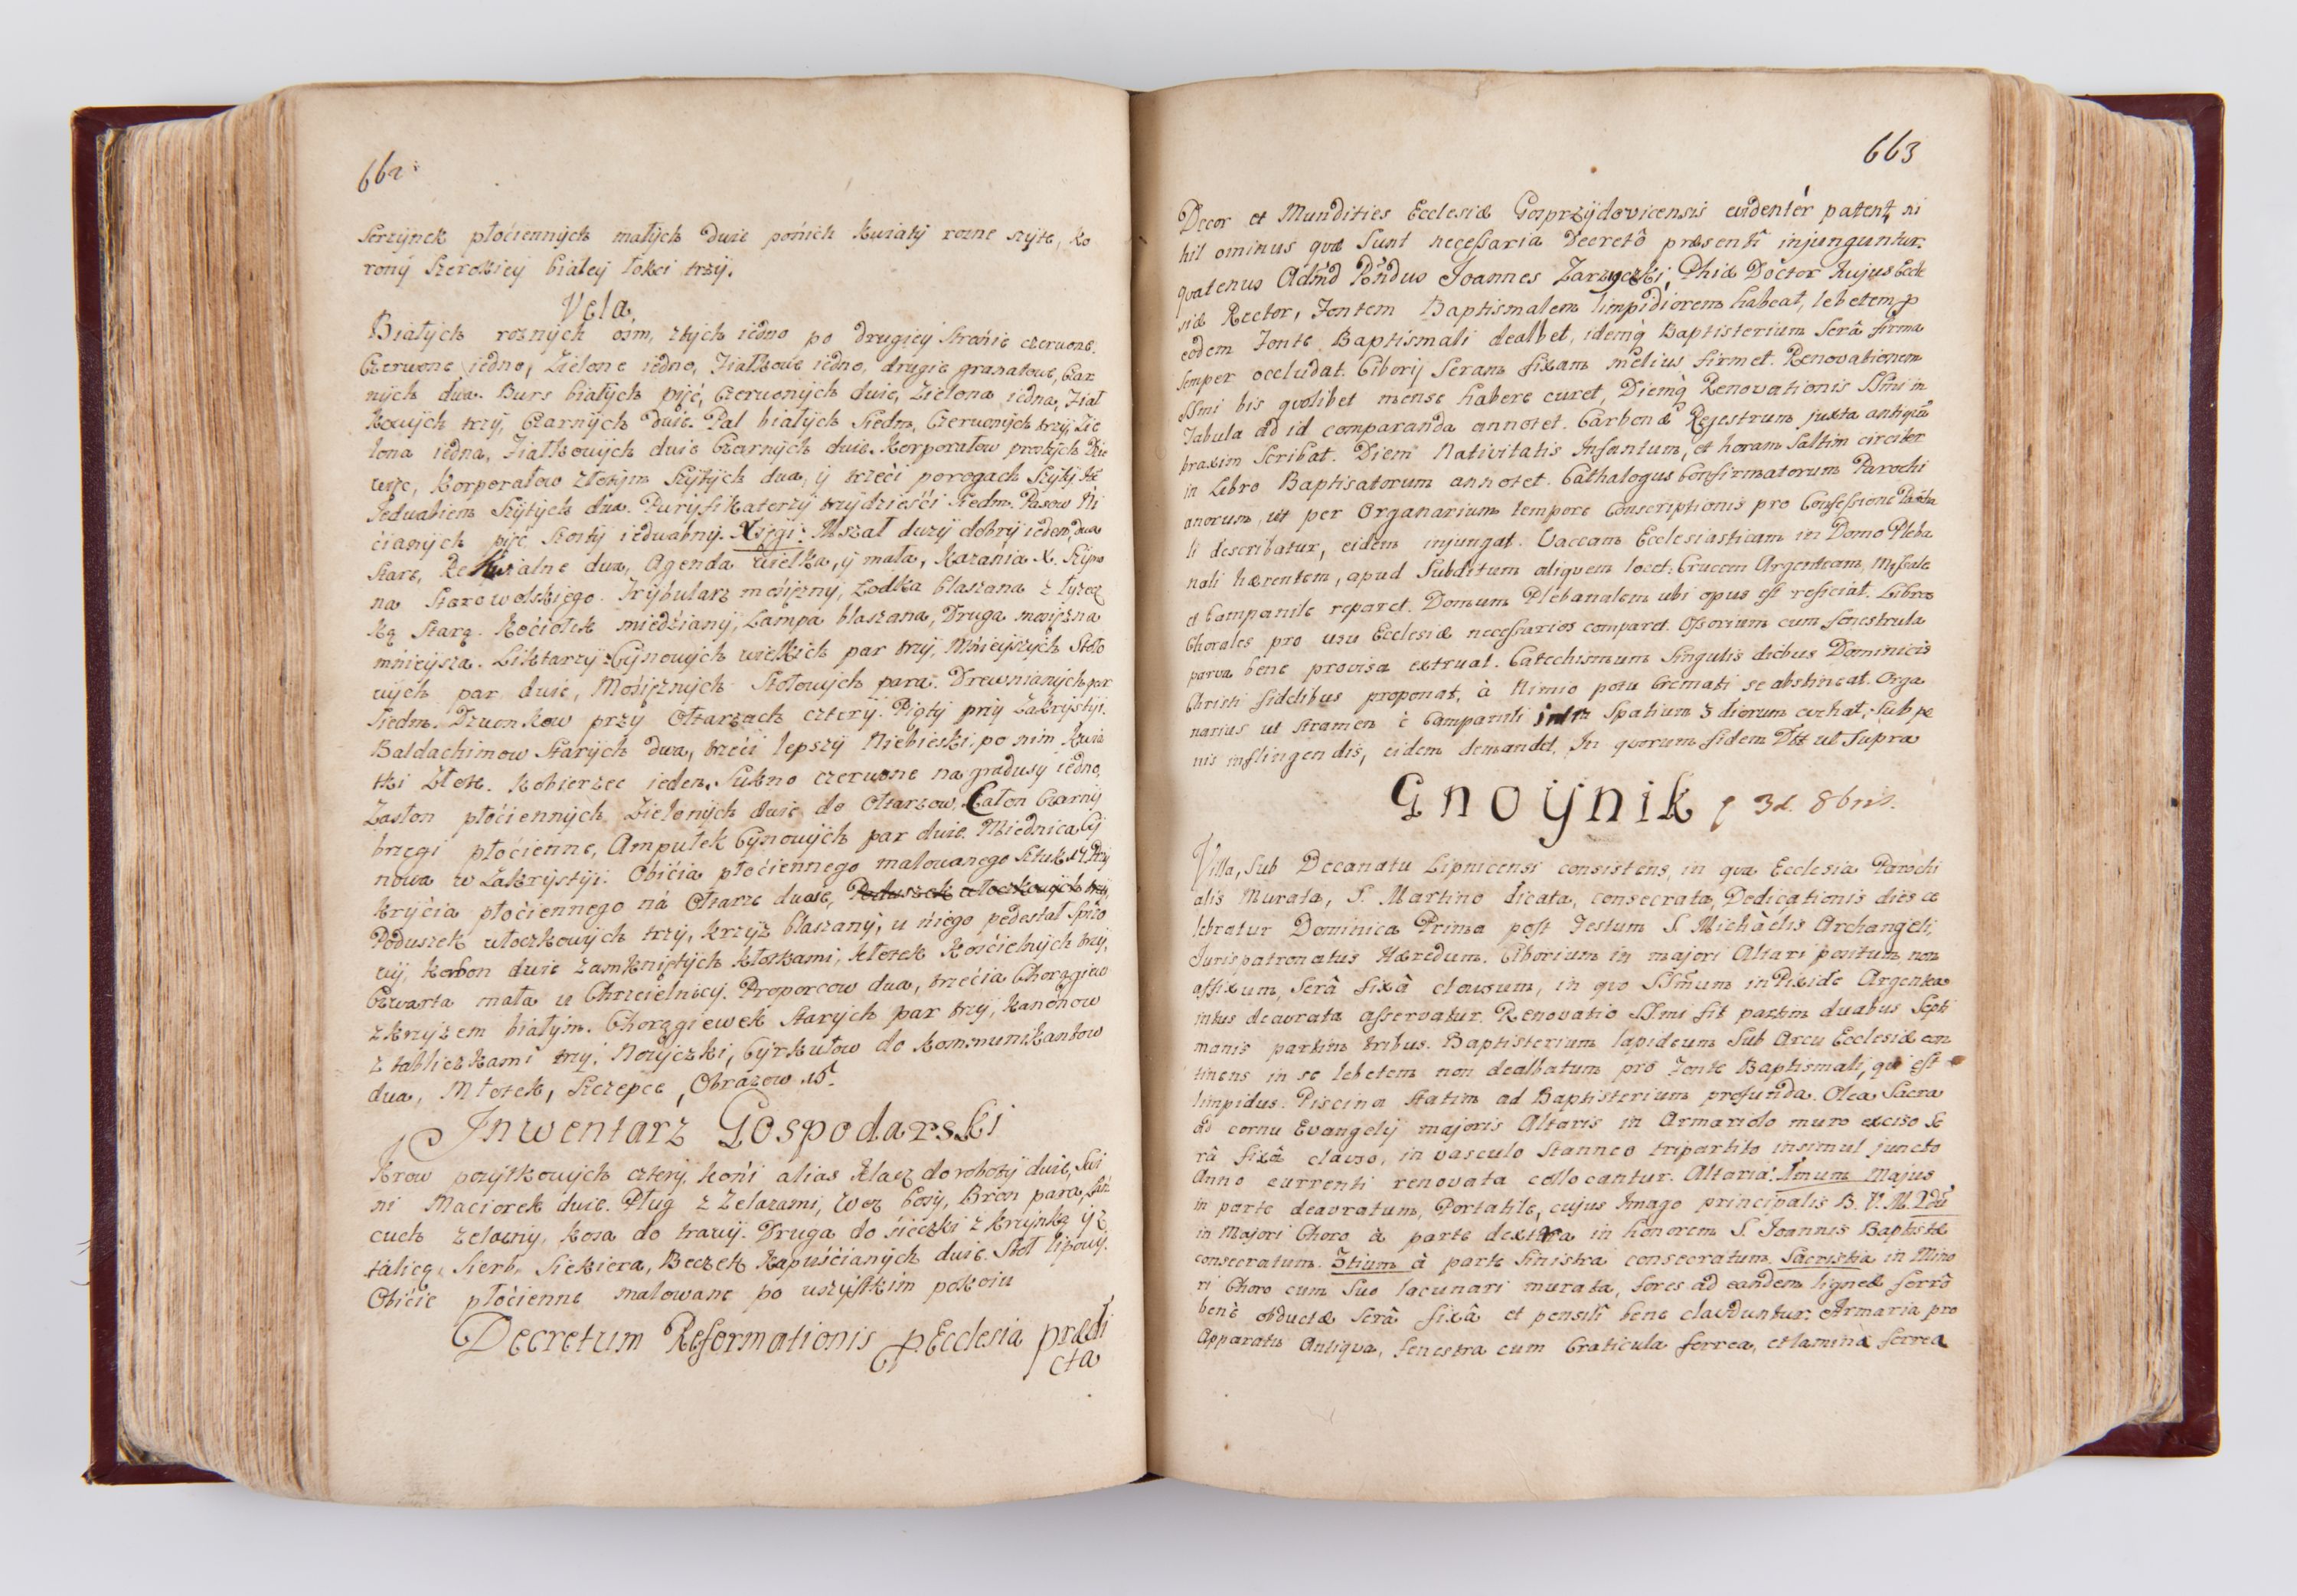 662
Serzynek płóciennych małych dwie ponich kwiaty rozne szyte, ko
rony Szerokiey białey łokci trzy.
Vela.
Białych roznych osm, ztych iedno po drugiey stronie czerwone.
Czerwone iedno, Zielone iedno, Fiałkowe iedno, drugie granatowe, Czar
nych dwa. Burs białych pięć, Czerwonych dwie, Zielona iedna, Fiał
kowych trzy, Czarnych dwie. Pal białych Siedm, Czerwonych trzy, Zie
lona iedna, Fiałkowych dwie Czarnych dwie. Korporałow prostych Dzie
więć, Korporałow złotym Szytych dwa, y trzeci porogach Szyty
Jedwabiem Szytych dwa. Puryfikaterzy trzydzieści Siedm. Pasow Ni
cianych pięć Szosty iedwabny. Xięgi: Mszał duzy dobry ieden, dwa
Stare, Rekwialne dwa, Agenda wielka, y mała, Kazania X. Szymo
na Starowolskiego. Trybularz mosiężny, Łodka blaszana z łyzecz
ką Starą. Kociołek miedziany, Lampa blaszana, Druga mosiężna
mnieysza. Liktarzy Cynowych wielkich par trzy, Mnieyszych Sto
wych par dwie, Mosiężnych Stołowych para. Drewnianych par
Siedm. Dzwonkow przy Ołtarzach cztery. Piąty przy Zakrystyi.
Baldachimow Starych dwa, trzeci lepszy Niebieski, po nim Kwia
tki Złote. Kobierzec ieden. Sukno czerwone na gradusy iedno,
Zasłon płóciennych Zielonych dwie do Ołtarzow, Całon Czarny
brzegi płócienne, Ampułek Cynowych par dwie. Miednica Cy
nowa w Zakrystyi. Obicia płóciennego malowanego Sztuk 17. Przy
krycia płóciennego ná Ołtarze dwoie, Poduszek włoczkowych trzy,
Poduszek włoczkowych trzy, krzyż blaszany, u niego pedestał Spiżo
wy, Karbon dwie zamkniętych kłotkami, kłotek Kościelnych trzy,
Czwarta mała u Chrzcielnicy. Proporcow dwa, trzecia Chorągiew
z krzyżem białym. Chorągiewek Starych par trzy, Kanonow
z tabliczkami trzy. Nozyczki, Cyrkułow do kommunikantow
dua, Młotek, Szczepce, Obrazow 15.
Inwentarz Gospodarski
Krow pozytkowych cztery, koni alias Klacz do roboty dwie, Swi
ni Maciorek dwie. Pług z Zelazami, Woz bosy, Bron para, Łań
cuch zelazny, Kosa do trawy. Druga do sieczki z krzynką y z
talicą, Sierb, Siekiera, Beczek Kapuścianych dwie. Stoł lipowy.
Obicie płócienne malowane po wszystkim pokoiu
Decretum Reformationis p Ecclesia prædi
cta
663
Decor et Mundities Ecclesiæ Gosprzydovicensis evidentér patent, ni
hil ominus quæ Sunt necessaria Decretô præsenti injunguntur.
quatenus Adm̃d Rñdus Joannes Zarzycki, Phiæ Doctor hujus Eccle
siæ Rector, Fontem Baptismalem limpidiorem habeat, lebetem p
eodem Fonte Baptismali dealbet, idemq̀ Baptisterium Serâ firma
semper occludat. Ciborij Seram fixam melius firmet. Renovationem
SSmi bis quolibet mense habere curet, Diemq̀ Renovationis SSmi in
Tabula ad id comparanda annotet. Carbonæ Rejestrum juxta antiquã
praxim Scribat. Diem Nativitatis Infantum, et horam Saltim circiter
in Libro Baptisatorum annotet. Cathalogus Confirmatorum Parochi
anorum, ut per Organarium tempore Conscriptionis pro Confessione Pascha
li describatur, eidem injungat. Vaccam Ecclesiasticam in Domo Pleba
nali hærentem, apud Subditum aliquem locet. Crucem Argenteam, Missale
et Campanile reparet. Domum Plebanalem ubi opus est reficiat. Libros
Chorales pro usu Ecclesiæ necessarios comparet. Ossorium cum fenestrula
parva bene provisa extruat. Catechismum Singulis diebus Dominicis
Christi fidelibus proponat, à Nimio potu Cremati se abstineat. Orga
narius ut Stramen è Campanili intra Spatium 3 dierum evehat, Sub pæ
nis infligendis, eidem demandet. In quorum fidem Dtt ut Supra
Gnoynik p 3d. 8bris.
Villa, Sub Decanatu Lipnicensi consistens, in qua Ecclesia Parochi
alis Murata, S. Martino dicata, consecrata, Dedicationis dies ce
lebratur Dominica Prima post Festum S. Michaëlis Archangeli,
Jurispatronatus Hæredum. Ciborium in majori Altari positum, non
affixum, Serâ fixâ clausum, in quo SSmum in Pixide Argentea
intus deaurata asservatur. Renovatio SSmi fit partim duabus Septi
manis partim tribus. Baptisterium lapideum Sub Arcu Ecclesiæ con
tinens in se lebetem non dealbatum pro Fonte Baptismali, qui est
limpidus. Piscina statim ad Baptisterium profunda. Olea Sacra
ad cornu Evangelij majoris Altaris in Armariolo muro exciso Se
râ fixâ clauso, in vasculo Stanneo tripartito insimul juncto
Anno currenti renovata collocantur. Altaria: Imum Majus
in parte deauratum, Portatile, cujus Imago principalis B. V. M. 2dũ
in Majori Choro à parte dextra in honorem S. Joannis Baptistæ
consecratum. 3tium à parte Sinistra consecratum. Sacristia in Mino
ri Choro cum Suo lacunari murata, fores ad eandem ligneæ ferrô
benè obductæ Serâ fixâ et pensili bene clauduntur. Armaria pro
Apparatu Antiqua, fenestra cum Craticula ferrea, et lamina ferrea